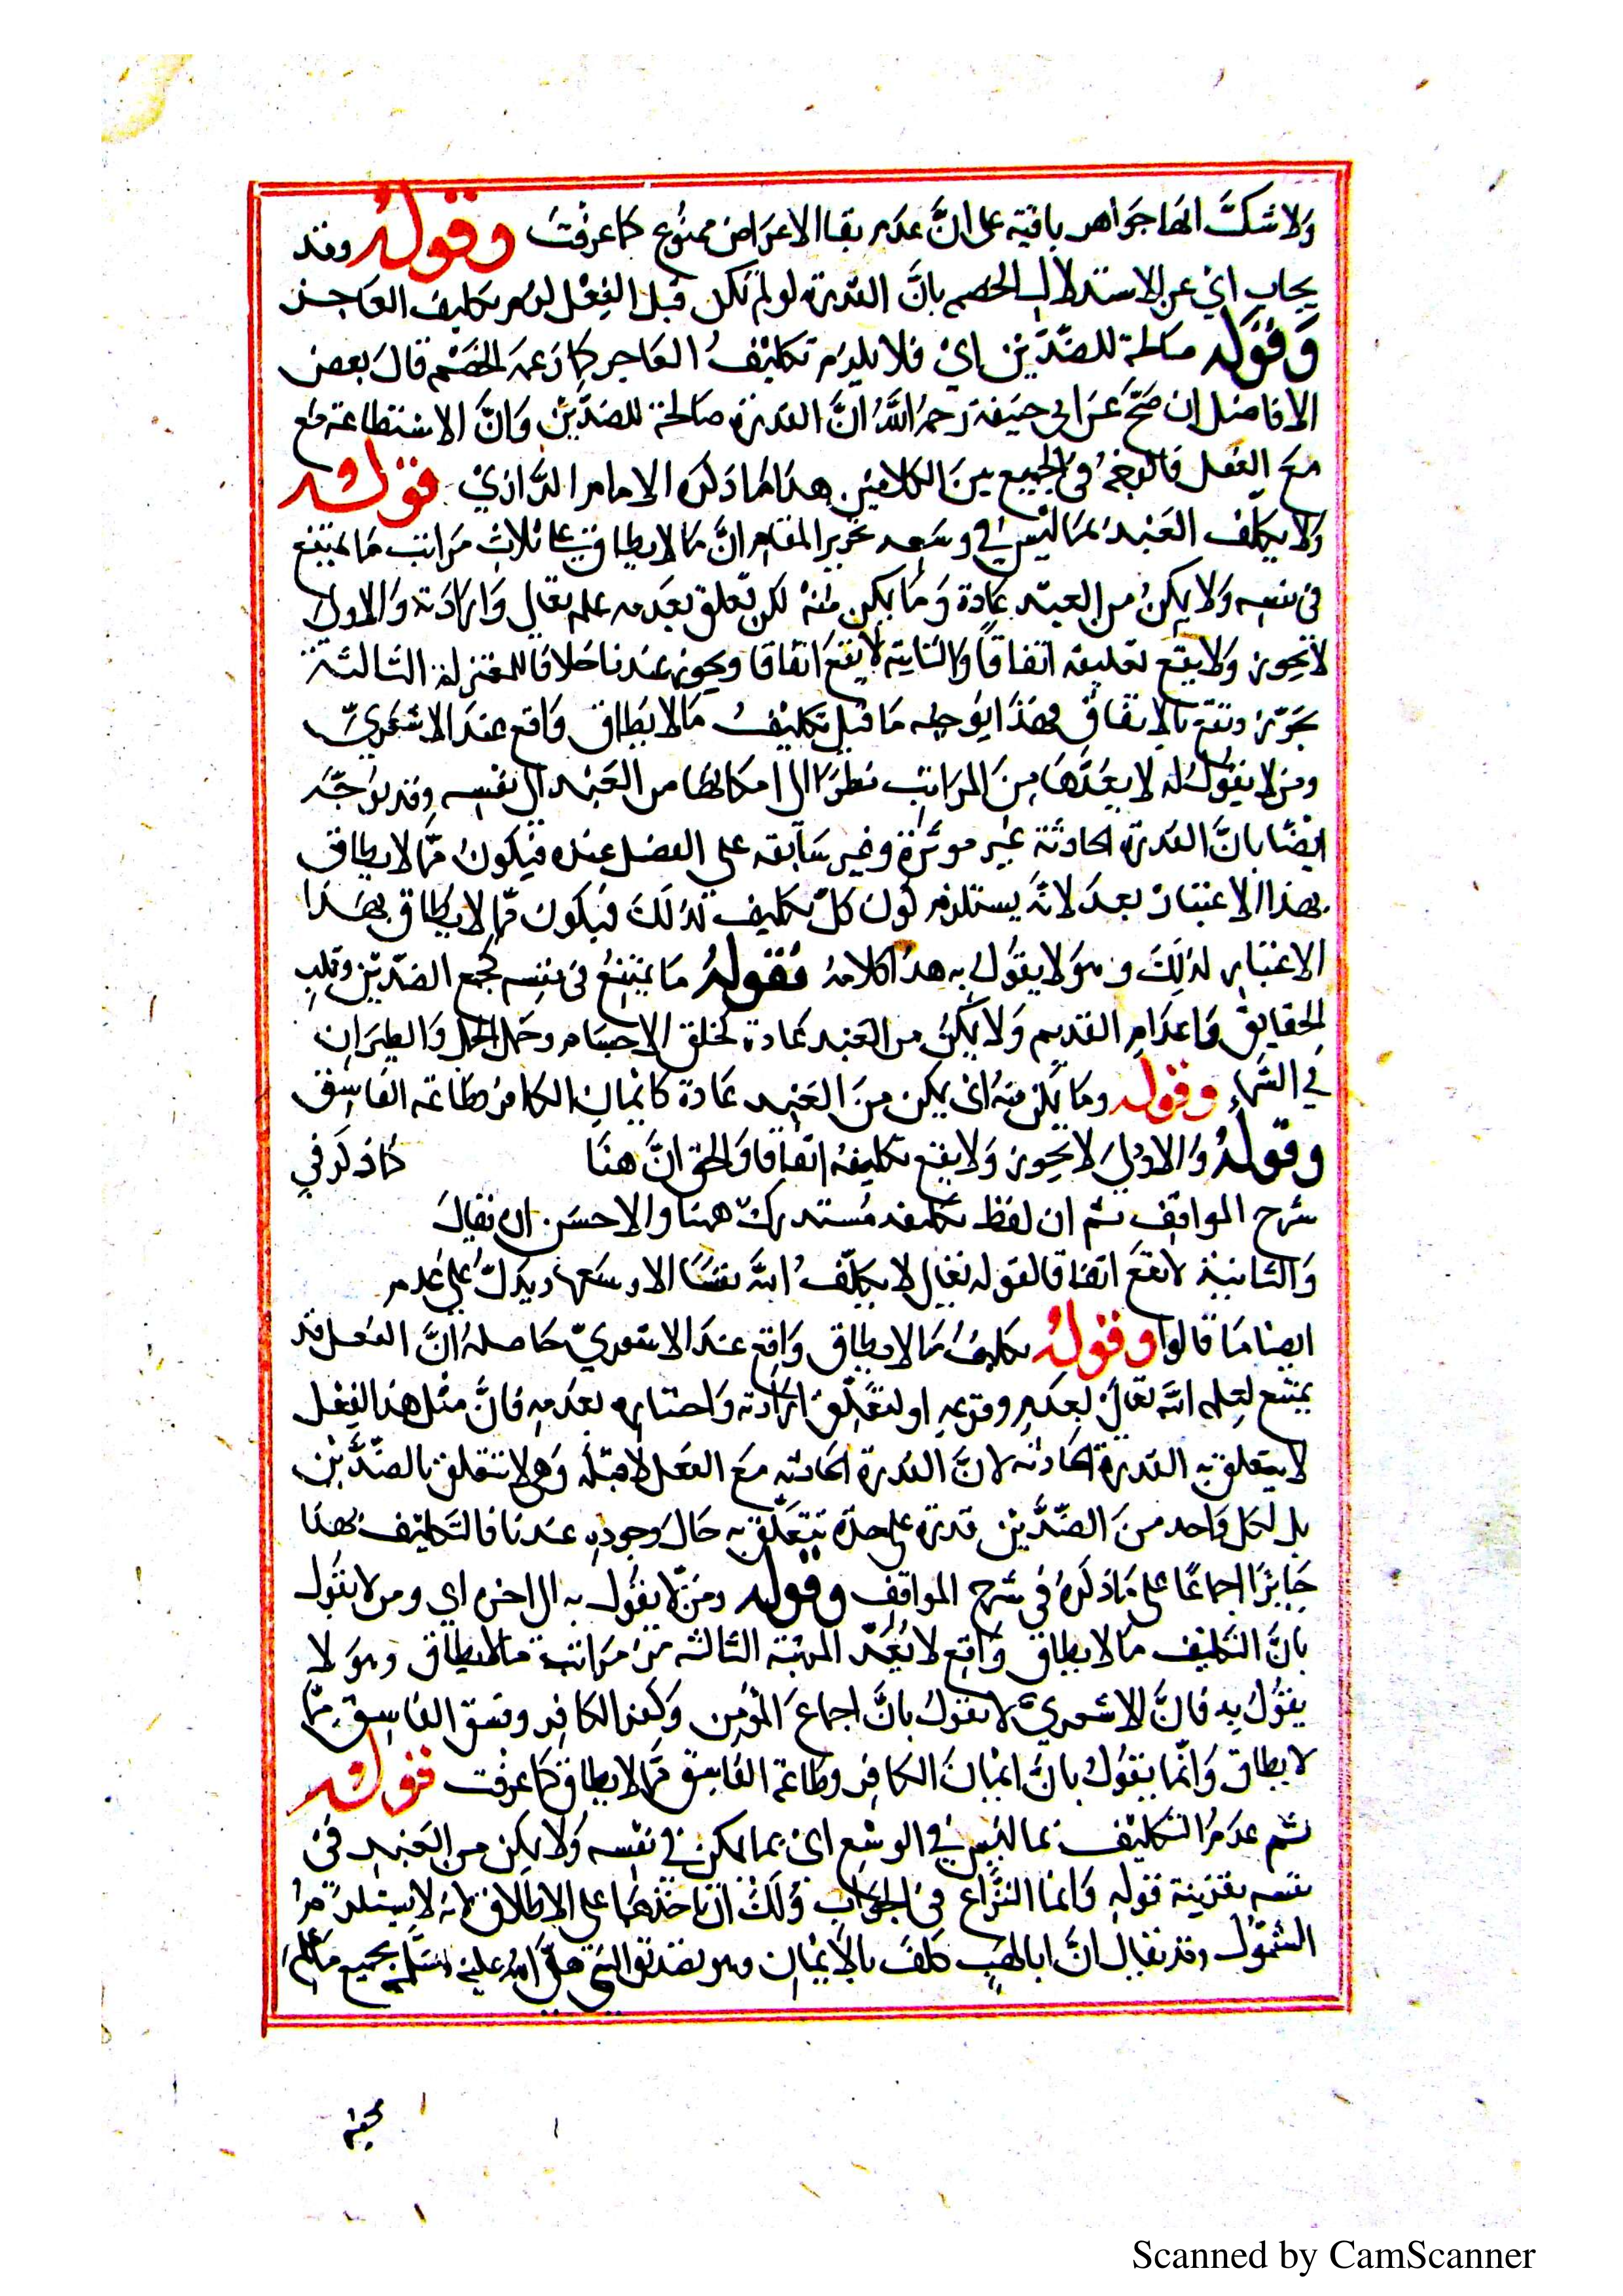 وَلا شَكَّ انها جَواهر باقية على انَّ عدَم بقا الاعرَاض ممنُوع كما عرفت وقولهُ وقد
يجاب اي عن الاستدلال الخصم بانَّ القدرة لو لم تكن قبل الفِعْل لزم تكليف العاجز
وَقوله صالحة للضدَّين اي فلا يلزم تكليفُ العاجز كما زعمَه الخصْم قالَ بعض
الافاضل ان صَحَّ عَن ابي حنيفة رَحمهُ اللَّهُ انَّ القدرة صَالحة للضدَّين وَانَّ الاستطاعة مع
معَ الفعل فالوجهُ في الجميع بينَ الكلامين هذا مَا ذكره الامام الرَّازيْ قوله
وَلا يكلف العَبْد بمَا ليْسَ في وسعه تحرير المقام انَّ مَا لا يطاق على ثلاث مَراتب مَا يمتنع
في نفسه وَلا يمكنُ من العبد عَادة وَمَا يمكن منهُ لكن تعلق بعَدمه علمه تعالى وَارادَته وَالاولى
لا تجوز وَلا يقع تكليفه اتفاقاً والثانية لا يقعَ اتفاقا ويجوز عندنا خلافا للمعتزلة الثالثة
يجوّز وتقع بالاتفاق فهذَا توجيه مَا قيل تكليفُ مَا لا يُطاق وَاقع عندَ الاشعَريّ
ومن لا يقوُل له لا يعُدّهَا منَ المرَاتب نظرًا الى امكانها من العَبد الى نفسِه وقد يوَجَّه
ايضًا بانَّ القدرة الحادثة غير موثّرة وغير سَابقة على الفعل عنده فيكون ممّا لا يطاق
بهذا الاعتبار بعدَ لانَّه يستلزم كون كلّ تكليف كذلَكَ فيكون ممّا لا يُطاق بهَذا
الاعتبار لذلِكَ وهوَ لا يقوُلُ به هذا كلامهُ فقولهُ مَا يمتنعُ في نفسِه كجمع الضدّين وقلب
الحقايق وَاعدام القديم وَلا يمكنُ من العَبد عَادة كخلق الاجسَام وحمل الجبل وَالطيرَان
في السّماء وقوله ومَا يمكن منهُ اى يمكن منَ العَبْد عَادة كايمان الكافر وطاعة الفاسِق
وقولهُ وَالاولى لا يجوز وَلا يقع تكليفهُ اتفاقا وَالحق انَّ هنَا كما ذكر في
شرح المواقِف ثم ان لفظ تكليفه مُستدركّ ههنا والاحسَن ان يقالَ
وَالثانية لا تقعَ اتفاقا لقوله تعَالى لا يكلّفُ اللَّه نفسًا الا وسعَها ويَدلُّ على عَدم
ايضا مَا قالوا وقولهُ تكليفُ مَا لا يطاق وَاقِع عندَ الاشعريّ حَاصلهُ انَّ الفعل قد
يمتنع لعِلم اللَّه تعَالى بعدَمِ وقوعِه او لتعَلّق ارَادته وَاختياره بعدمه فانَّ مثْل هذا الفِعْل
لا يتعلق به القدرة الحادثة لانَّ القدرة الحادثة معَ الفعَل لا قبْله وَهي لا تتعلق بالضدَّيْن
بل لكل وَاحد منَ الضدَّيْن قدرة على حدَة تتعَلّق به حَالَ وجودِه عندَنا فالتَكليْف بهَذا
جَايزًا اجماعًا على مَا ذكرهُ في شرح المواقف وقوله ومَنْ لا يقوُل به الى اخره اي ومن لا يقوُل
بانَّ التكليف مَا لا يطاق وَاقِع لا يُعَدّ المرتبة الثالثة مَن مَراتب مَا لا يطاق وهوَ لا
يقوُلُ به فانَّ الاشعريّ لا يقولُ بانَّ اجماعَ المؤمن وَكفر الكافِر وفسق الفاسِق ممّا
لا يطاق وَانّما يقوُلُ بانَّ ايْمانَ الكافِر وطاعَة الفاسِق ممّا لا يطاق كما عرفت قوله
ثم عدمُ التكليْف بما ليْسَ في الوسْع اى بما يمكن في نفسِه وَلا يمكن من العَبد في
نفسه بقرينة قوله وَانما النّزاع في الجوَاز وَلَكَ ان تاخذهَا على الاطلاق لانه لا يستلزمُ
الشمُوْل وقد يقال انَّ ابا لهَبٍ كلفَ بالاِيْمان وهو تصديق النبي صَلَّى اللهُ عليه وَسَلّم بجميع مَا عُلم
مجيئه
Scanned by CamScanner